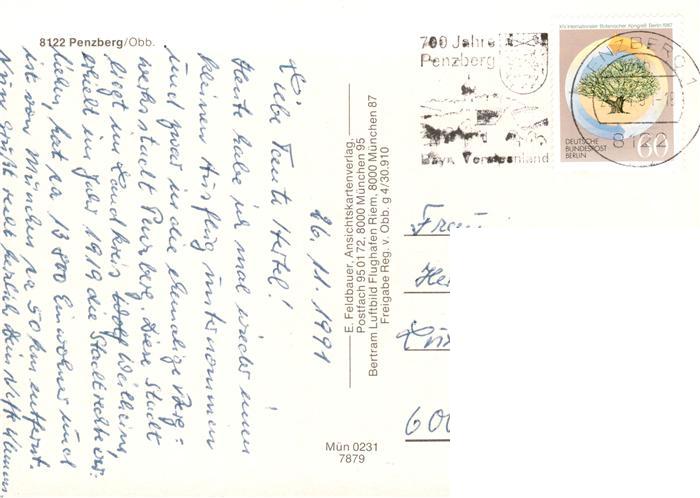 8122 Penzberg/Obb.
26.11.1991
Liebe Tante Hertel!
Heute habe ich mal wieder einen
kleinen Ausflug unternommen
und zwar in die ehemalige Berg-
werksstadt Penzberg. Diese Stadt
liegt im Landkreis Weilheim,
erhielt im Jahr 1919 die Stadtrechte ver-
liehen, hat ca 13 800 Einwohner und
ist von München ca 50 km entfernt.
Nun grüßt recht herzlich Dein Neffe
E. Feldbauer, Ansichtskartenverlag,
Postfach 95 01 72, 8000 München 95
Bertram Luftbild Flughafen Riem, 8000 München 87
Freigabe Reg. v. Obb. g 4/30.910
Mün 0231
7879
700 Jahre
Penzberg
Bayr. Voralpenland
XIV. Internationaler Botanischer Kongreß Berlin 1987
DEUTSCHE
BUNDESPOST
BERLIN
60
PENZBERG
8122
Frau
600